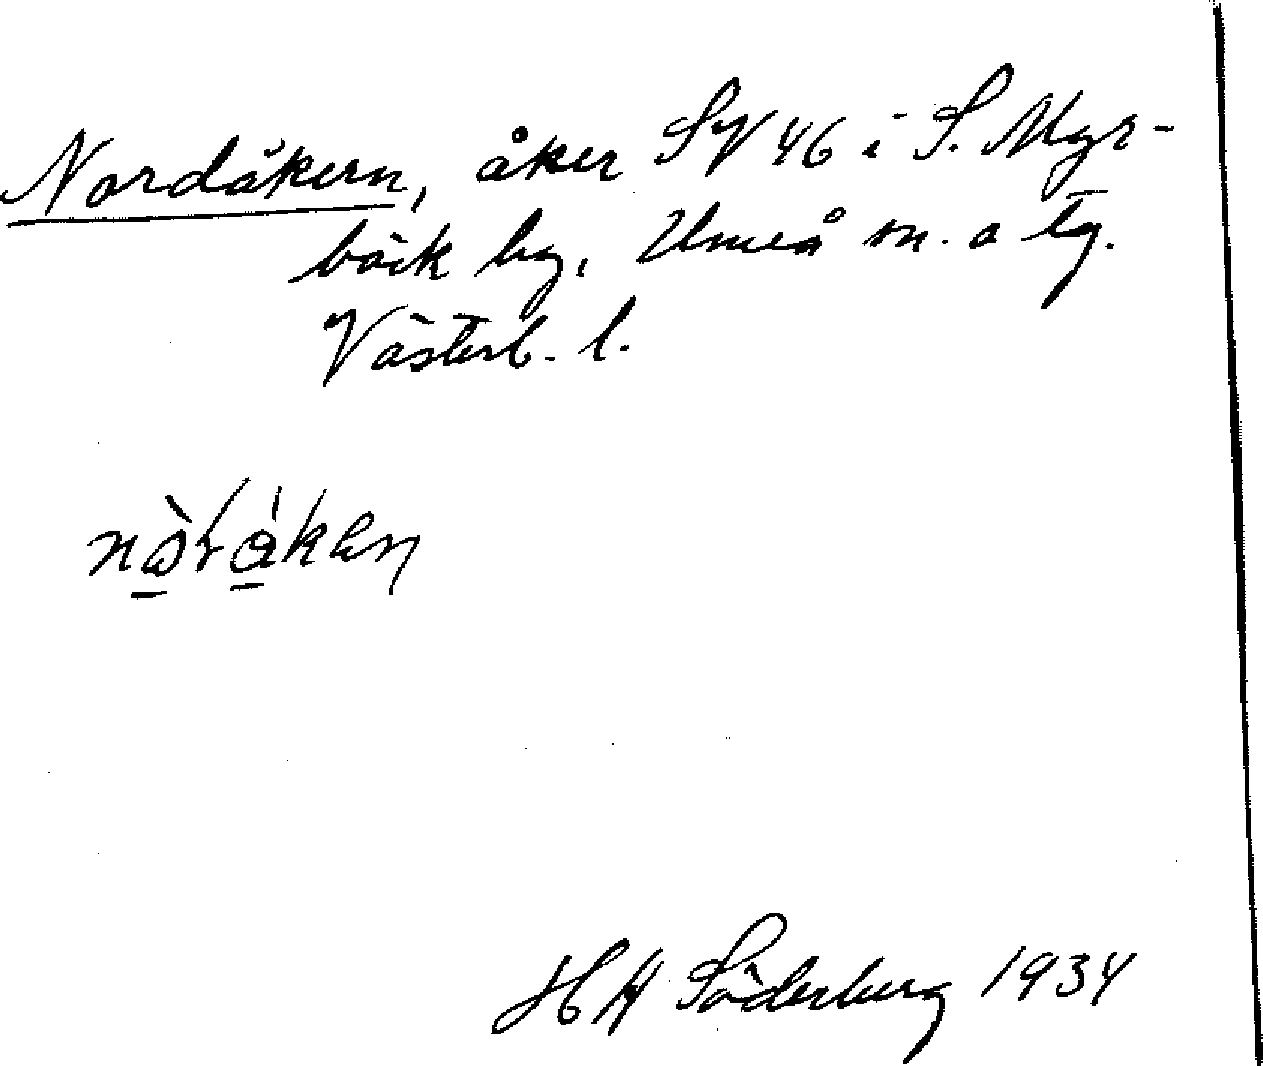 Nordåkern, åker SV 46 i S. Myr-
bäck by, Umeå sn. o tg.
Västerb. l.
H H Söderberg 1934